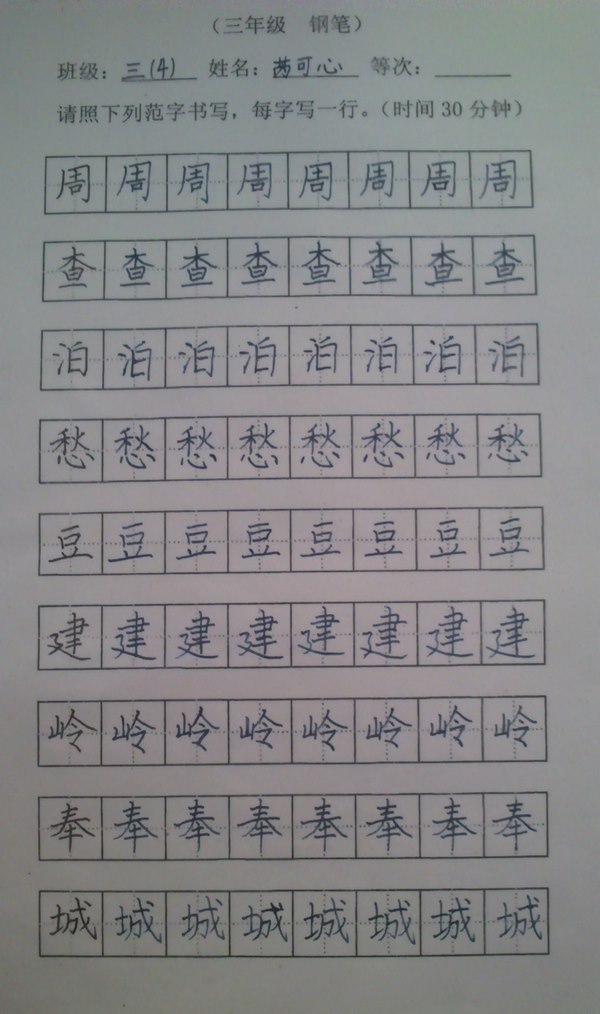 （三年级 钢笔）
班级：三(4) 姓名：苪可心 等次：
请照下列范字书写，每字写一行。（时间30分钟）
周周周周周周周周
查查查查查查查查
泊泊泊泊泊泊泊泊
愁愁愁愁愁愁愁愁
豆豆豆豆豆豆豆豆
建建建建建建建建
岭岭岭岭岭岭岭岭
奉奉奉奉奉奉奉奉
城城城城城城城城